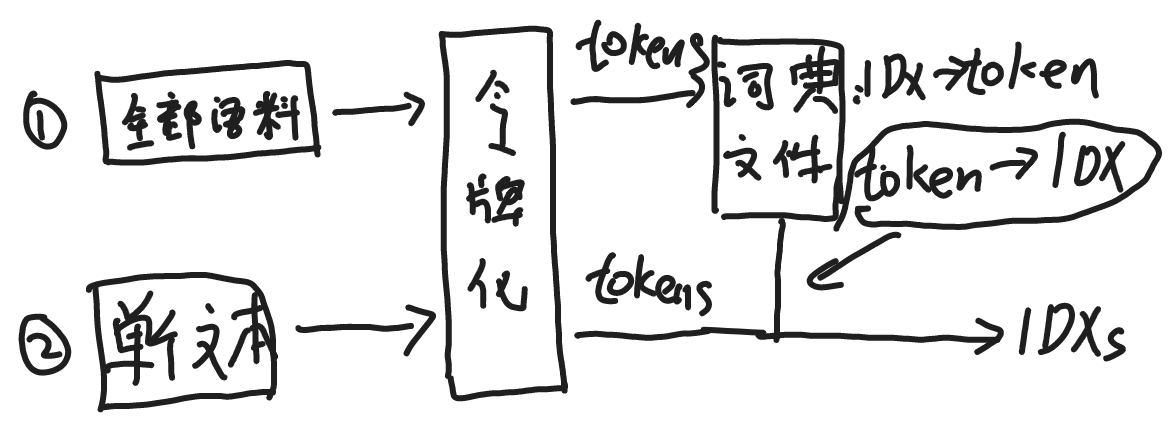 ① 全部语料
令牌化
tokens
词典文件
:IDX→token
token→IDX
② 新文本
tokens
IDXs